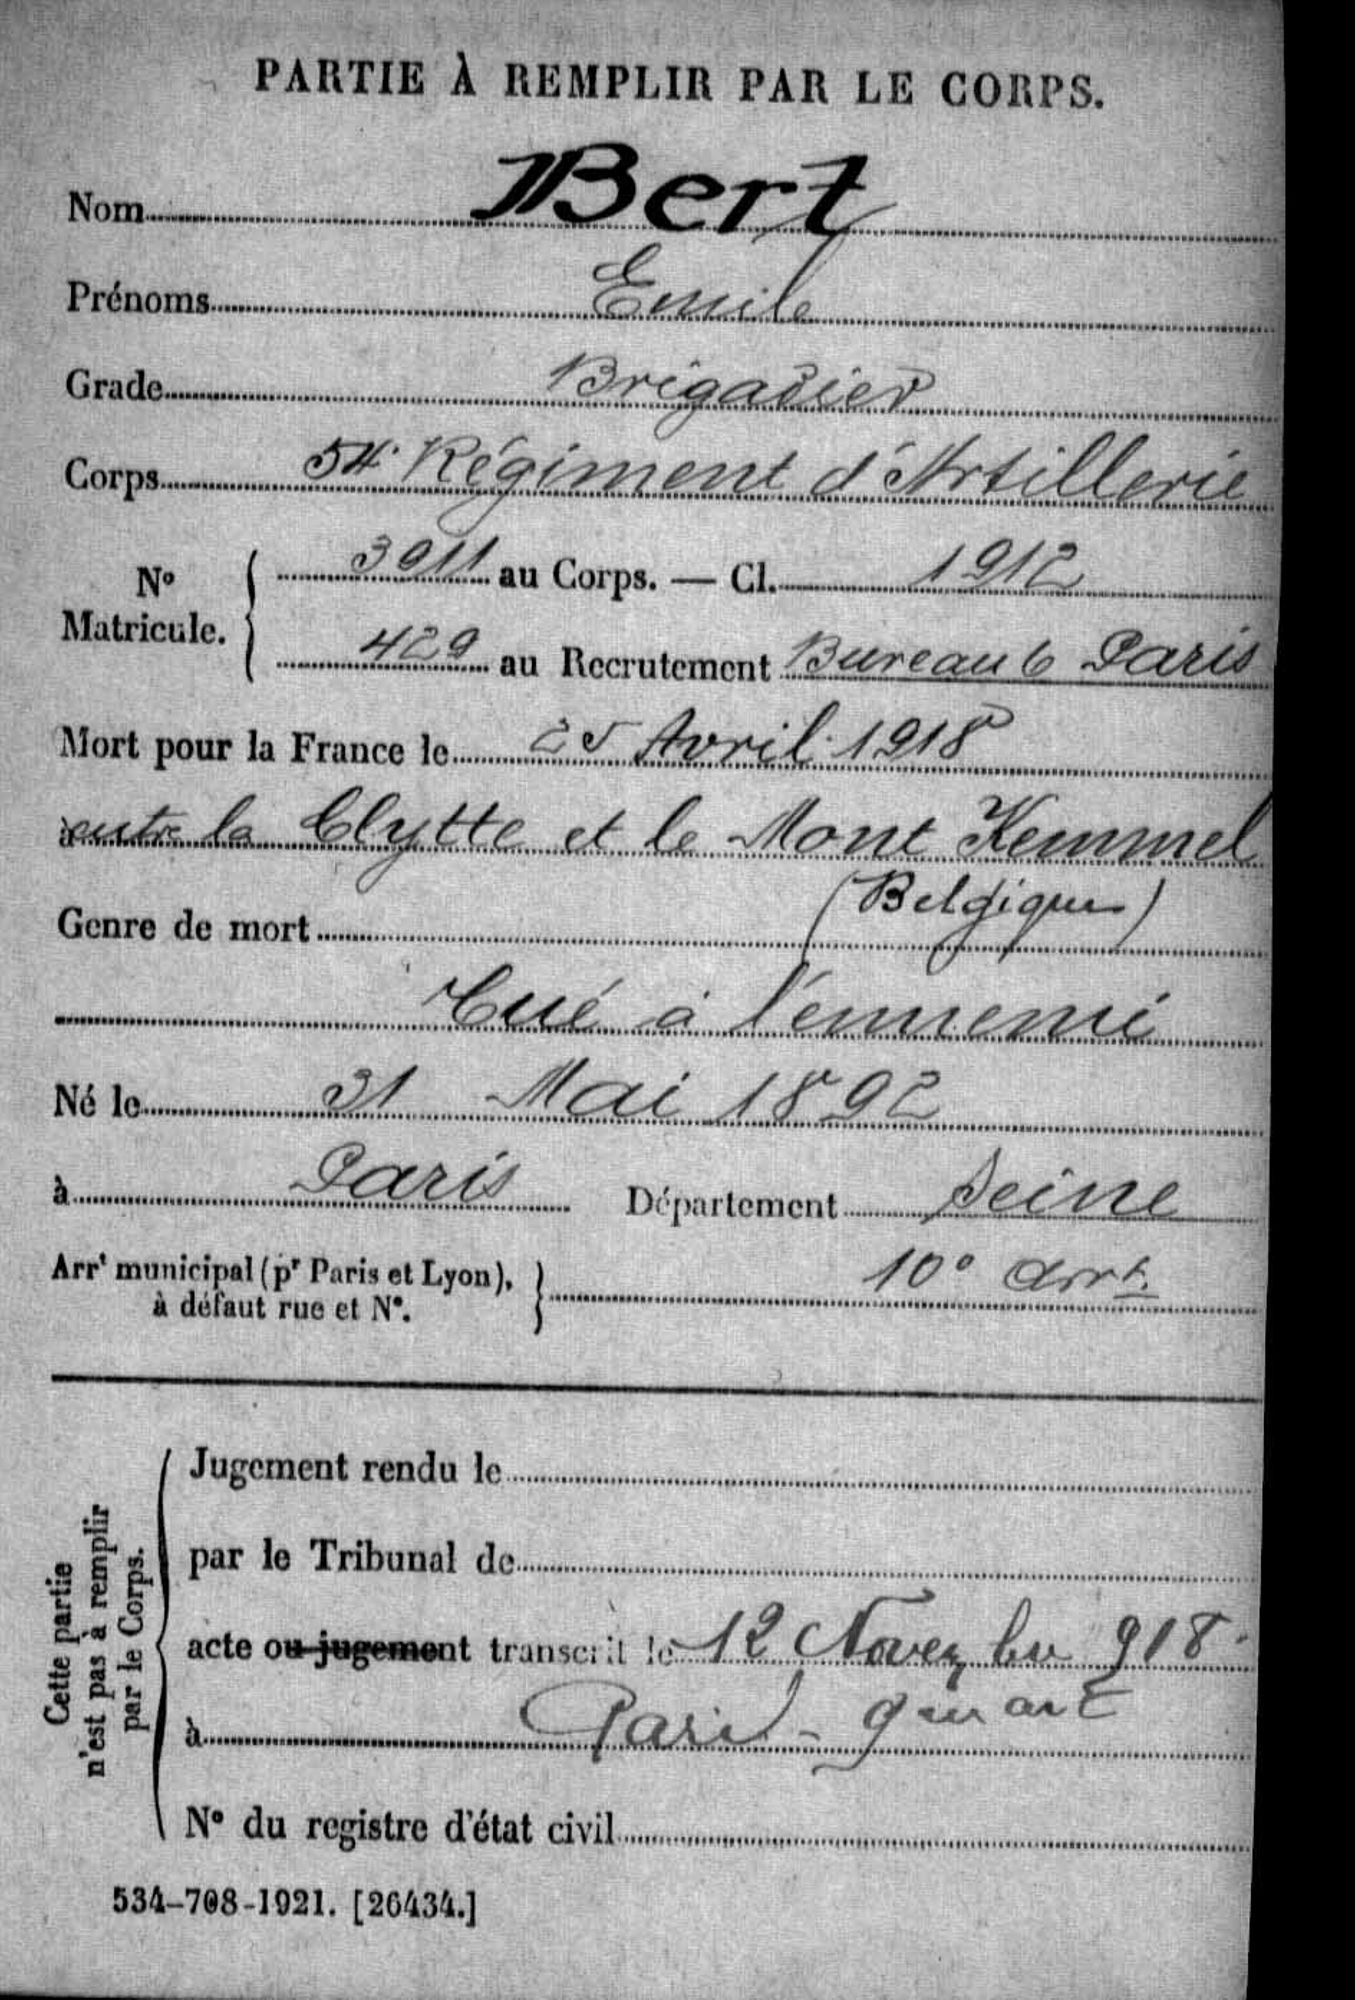 PARTIE À REMPLIR PAR LE CORPS.
Nom Bert
Prénoms Emile
Grade Brigadier
Corps 54e Régiment d'Artillerie
N° Matricule. { 3911 au Corps. — Cl. 1912
429 au Recrutement Bureau 6 Paris
Mort pour la France le 25 Avril 1918
à entre la Clytte et le Mont Kemmel
(Belgique)
Genre de mort
Tué à l'ennemi
Né le 31 Mai 1892
à Paris Département Seine
Arrt municipal (pr Paris et Lyon), } 10e arrt.
à défaut rue et N°.
Cette partie
n'est pas à remplir
par le Corps.
Jugement rendu le
par le Tribunal de
acte ou jugement transcrit le 12 Novembre 918.
à Paris - 9em arrt
N° du registre d'état civil
534-708-1921. [26434.]